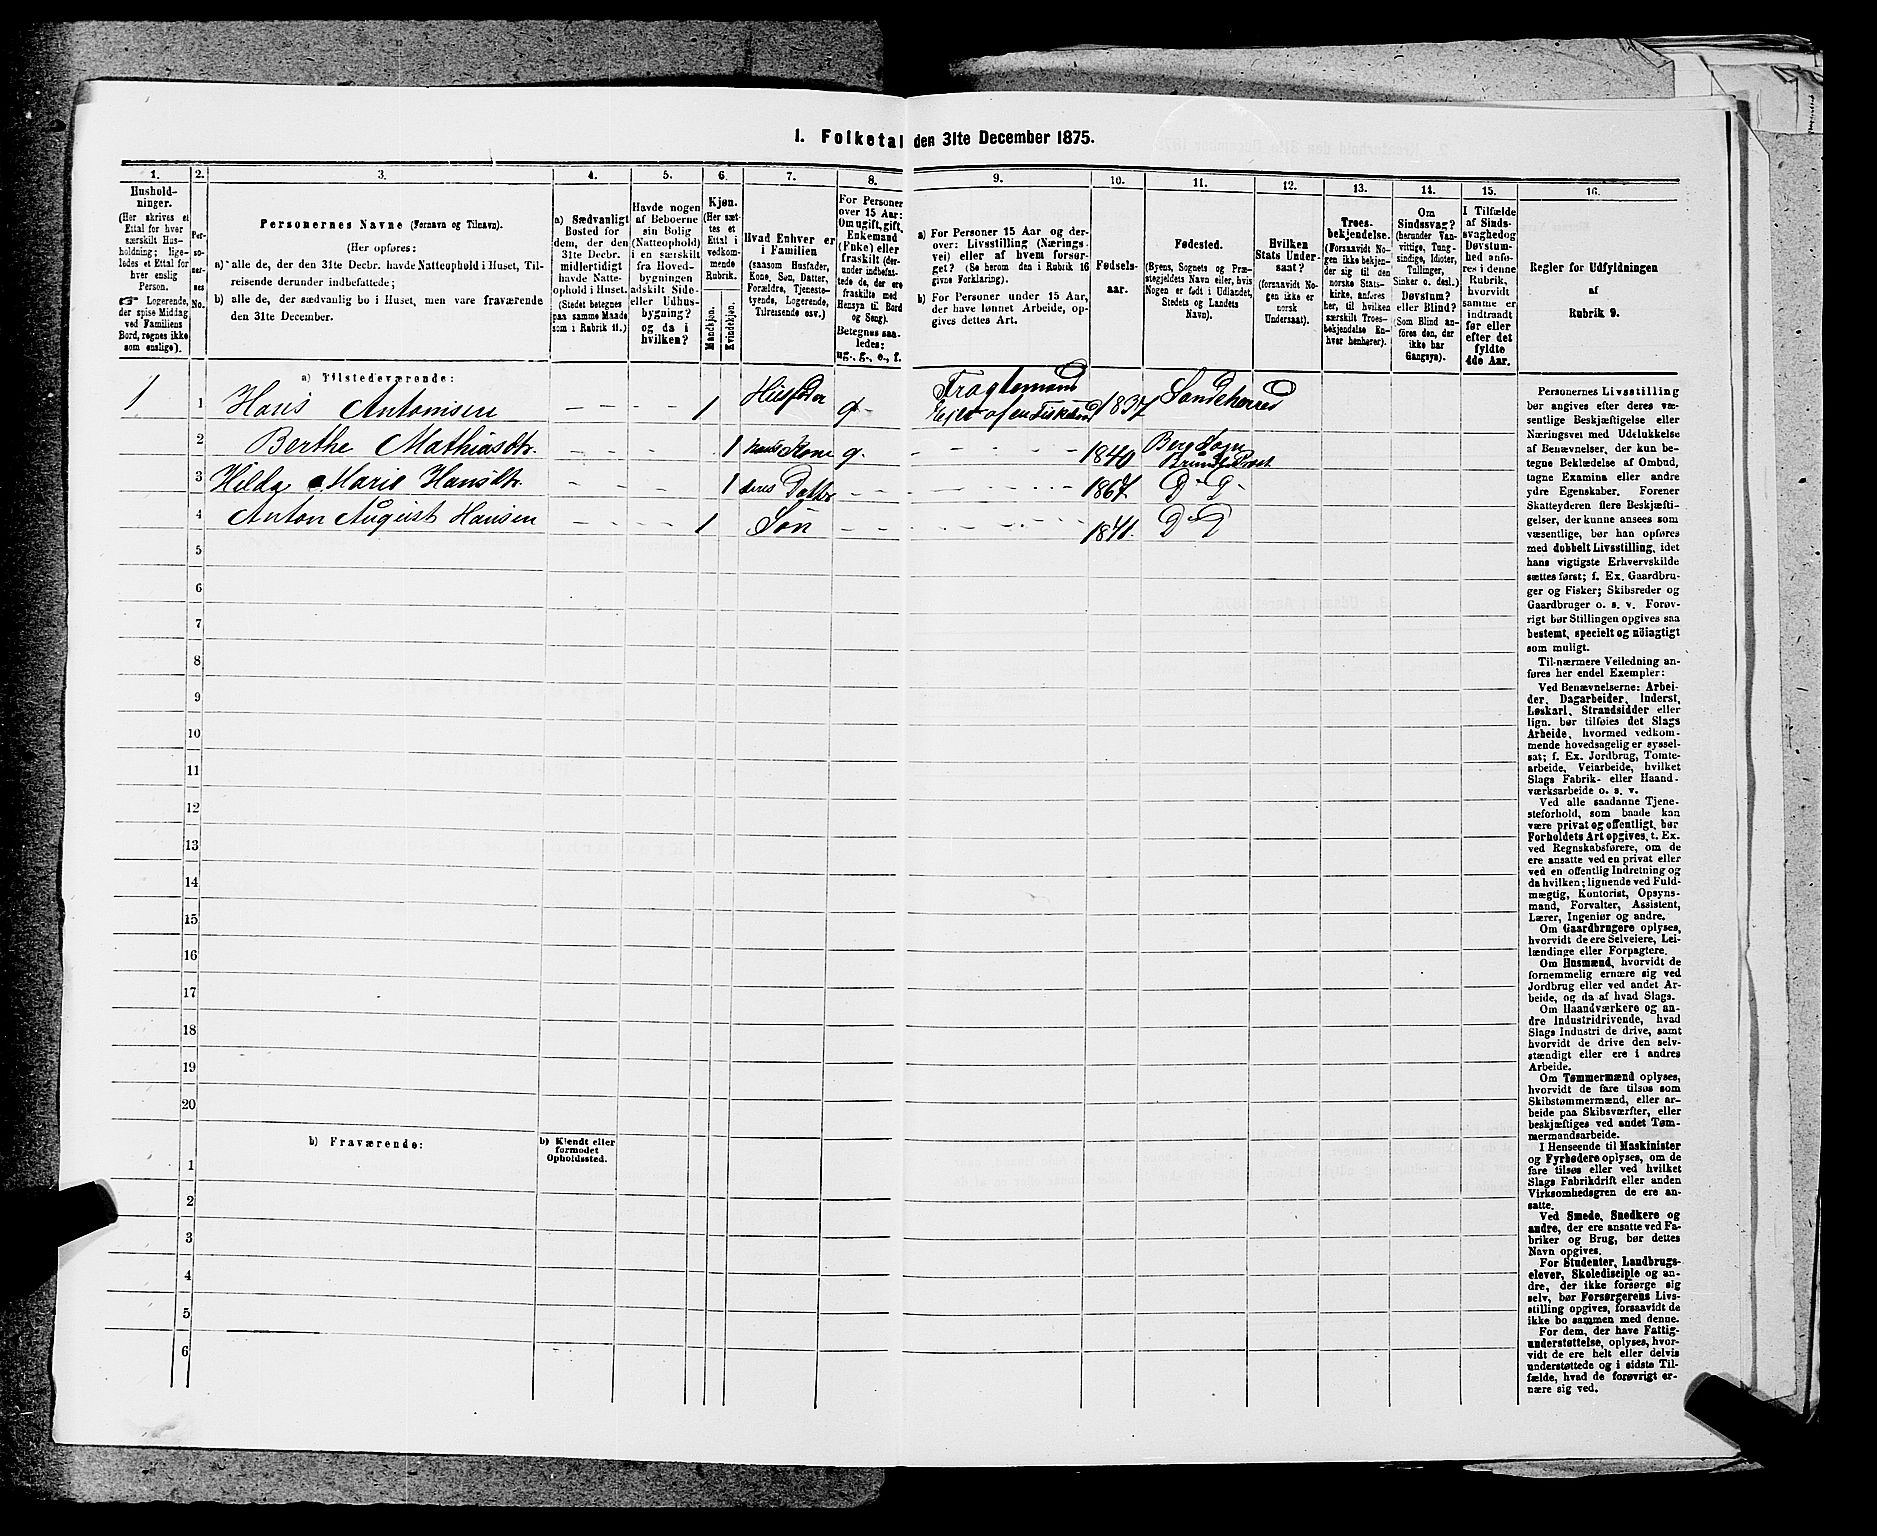 1. Folketal den 31te December 1875.
1.
Hushold-
ninger.
(Her skrives et
Ettal for hver
særskilt Hus-
holdning; lige-
ledes et Ettal for
hver enslig
Person.
Logerende,
der spise Middag
ved Familiens
Bord, regnes ikke
som enslige).
2.
Per-
so-
ner-
nes
No.
3.
Personernes Navne (Fornavn og Tilnavn).
(Her opføres:
a) alle de, der den 31te Decbr. havde Natteophold i Huset, Til-
reisende derunder indbefattede;
b) alle de, der sædvanlig bo i Huset, men vare fraværende
den 31te December.
4.
a) Sædvanligt
Bosted for
dem, der den
31te Decbr.
midlertidigt
havde Natte-
ophold i Huset.
(Stedet betegnes
paa samme Maade
som i Rubrik 11.)
5.
Havde nogen
af Beboerne
sin Bolig
(Natteophold)
i en særskilt
fra Hoved-
bygningen
adskilt Side-
eller Udhus-
bygning?
og da i
hvilken?
6.
Kjøn.
(Her sæt-
tes et
Ettal i
vedkom-
mende
Rubrik.
Mandkjøn.
Kvindekjøn.
7.
Hvad Enhver er
i Familien
(saasom Husfader,
Kone, Søn, Datter,
Forældre, Tjeneste-
tyende, Logerende,
Tilreisende osv.)
8.
For Personer
over 15 Aar:
Om ugift, gift,
Enkemand
(Enke) eller
fraskilt (der-
under indbefat-
tede de, der ere
fraskilte med
Hensyn til Bord
og Seng).
Betegnes saa-
ledes:
ug., g., e., f.
9.
a) For Personer 15 Aar og der-
over: Livsstilling (Nærings-
vei) eller af hvem forsør-
get? (Se herom den i Rubrik 16
givne Forklaring).
b) For Personer under 15 Aar,
der have lønnet Arbeide, op-
gives dettes Art.
10.
Fødsels-
aar.
11.
Fødested.
(Byens, Sognets og Præ-
stegjeldets Navn eller, hvis
Nogen er født i Udlandet,
Stedets og Landets
Navn).
12.
Hvilken
Stats Under-
saat?
(forsaavidt No-
gen ikke er
norsk
Undersaat).
13.
Troes-
bekjendelse.
(Forsaavidt No-
gen ikke bekjen-
der sig til den
norske Stats-
kirke, anføres
her, til hvilken
særskilt Troes-
bekjendelse En-
hver henhører).
14.
Om
Sindssvag?
(herunder Van-
vittige, Tung-
sindige, Idioter,
Tullinger,
Sinker o. desl.)
Døvstum?
eller Blind?
(Som Blind an-
føres den, der
ikke har
Gangsyn).
15.
I Tilfælde
af Sinds-
svaghed og
Døvstum-
hed anfø-
res i denne
Rubrik,
hvorvidt
samme er
indtraadt
før eller
efter det
fyldte
4de Aar.
16.
Regler for Udfyldningen
af
Rubrik 9.
a) Tilstedeværende:
1 1 Hans Antonisen – – – – 1 Husfader g – Fragtemand 1837 Sandeherred
Eier af en
2 Berthe Mathiasdtr. – – – – 1 hans Kone g. – – – – 1840 Berg Sogn
3 Hilda Marie Hansdtr. – – – – 1 deres Datter – – – – – – 1867. D – D –
4 Anton August Hansen – – – – 1 Søn – – – – – – 1871. D – D
5
6
7
8
9
10
11
12
13
14
15
16
17
18
19
20
b) Fraværende:
b) Kjendt eller
formodet
Opholdssted.
1
2
3
4
5
6
Personernes Livsstilling
bør angives efter deres væ-
sentlige Beskjæftigelse eller
Næringsvei med Udelukkelse
af Benævnelser, der kun be-
tegne Beklædelse af Ombud,
tagne Examina eller andre
ydre Egenskaber. Forener
Skatteyderen flere Beskjæfti-
gelser, der kunne ansees som
væsentlige, bør han opføres
med dobbelt Livsstilling, idet
hans vigtigste Erhvervskilde
sættes først; f. Ex. Gaardbru-
ger og Fisker; Skibsreder og
Gaardbruger o. s. v. Forøv-
rigt bør Stillingen opgives saa
bestemt, specielt og nöiagtigt
som muligt.
Til nærmere Veiledning an-
føres her endel Exempler:
Ved Benævnelserne: Arbei-
der, Dagarbeider, Inderst,
Løskarl, Strandsidder eller
lign. bør tilføies det Slags
Arbeide, hvormed vedkom-
mende hovedsagelig er syssel-
sat; f. Ex. Jordbrug, Tomte-
arbeide, Veiarbeide, hvilket
Slags Fabrik- eller Haand-
værksarbeide o. s. v.
Ved alle saadanne Tjene-
steforhold, som baade kan
være privat og offentligt, bør
Forholdets Art opgives, t. Ex.
ved Regnskabsførere, om de
ere ansatte ved en privat eller
ved en offentlig Indretning og
da hvilken; lignende ved Fuld-
mægtig, Kontorist, Opsyns-
mand, Forvalter, Assistent,
Lærer, Ingeniør og andre.
Om Gaardbrugere oplyses,
hvorvidt de ere Selveiere, Lei-
lændinge eller Forpagtere.
Om Husmænd, hvorvidt de
fornemmelig ernære sig ved
Jordbrug eller ved andet Ar-
beide, og da af hvad Slags.
Om Haandværkere og an-
dre Industridrivende, hvad
Slags Industri de drive, samt
hvorvidt de drive den selv-
stændigt eller ere i andres
Arbeide.
Om Tømmermænd oplyses,
hvorvidt de fare tilsøs som
Skibstømmermænd, eller ar-
beide paa Skibsværfter, eller
beskjæftiges ved andet Tøm-
mermandsarbeide.
I Henseende til Maskinister
og Fyrbødere oplyses, om de
fare tilsøs eller ved hvilket
Slags Fabrikdrift eller anden
Virksomhedsgren de ere an-
satte.
Ved Smede, Snedkere og
andre, der ere ansatte ved Fa-
briker og Brug, bør dettes
Navn opgives.
For Studenter, Landbrugs-
elever, Skoledisciple og an-
dre, der ikke forsørge sig
selv, bør Forsørgerens Livs-
stilling opgives, forsaavidt de
ikke bo sammen med denne.
For dem, der have Fattig-
understøttelse, oplyses, hvor-
vidt de ere helt eller delvis
understøttede og i sidste Til-
fælde, hvad de forøvrigt er-
nære sig ved.